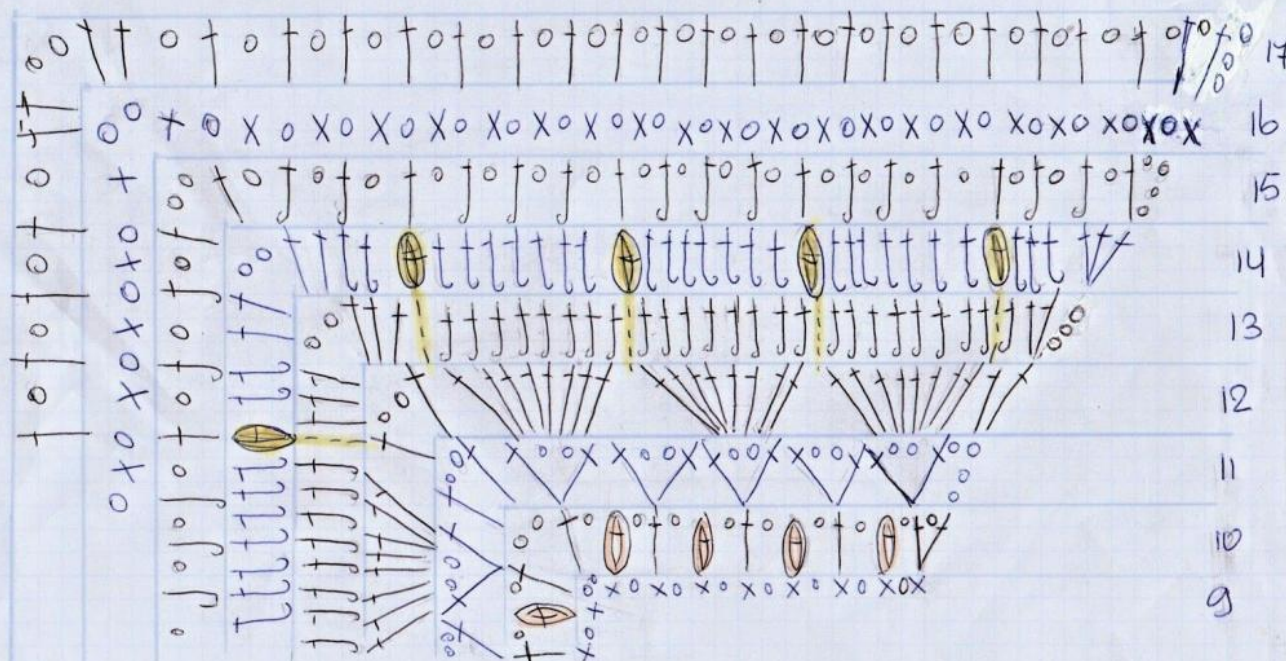 17
16
15
14
13
12
11
10
9